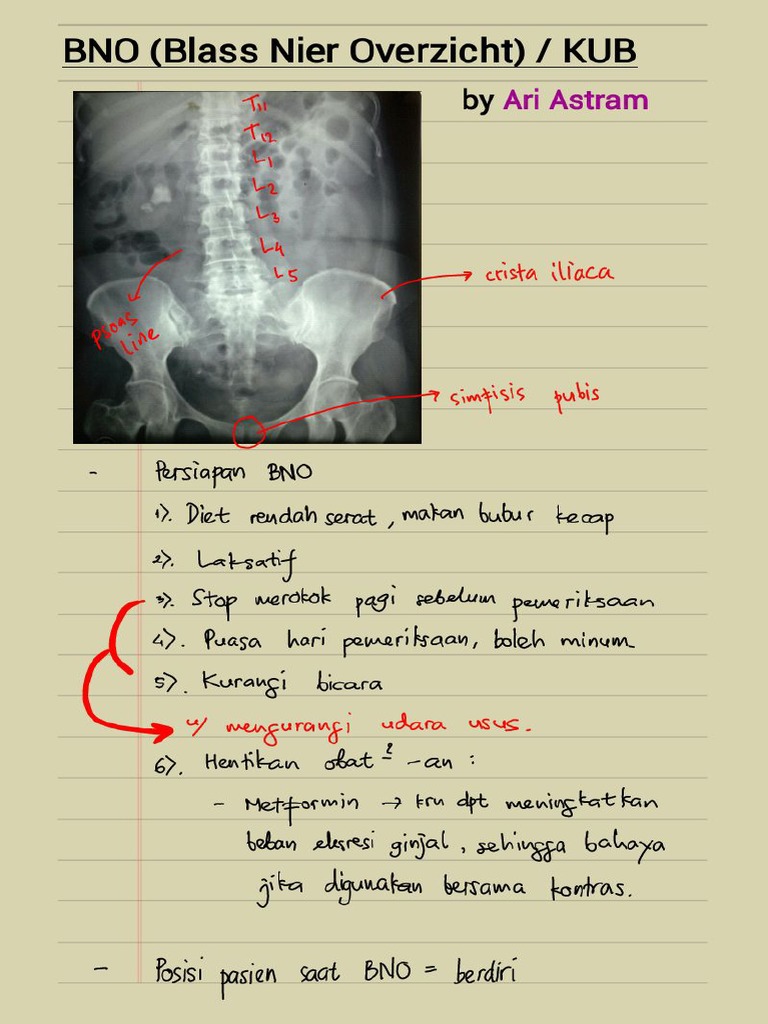 BNO (Blass Nier Overzicht) / KUB
by Ari Astram
T11
T12
L1
L2
L3
L4
L5
psoas
line
crista iliaca
simfisis pubis
- Persiapan BNO
1). Diet rendah serat, makan bubur kecap
2). Laksatif
3). Stop merokok pagi sebelum pemeriksaan
4). Puasa hari pemeriksaan, boleh minum
5). Kurangi bicara
u/ mengurangi udara usus.
6). Hentikan obat2-an :
- Metformin → krn dpt meningkatkan
beban eksresi ginjal, sehingga bahaya
jika digunakan bersama kontras.
- Posisi pasien saat BNO = berdiri